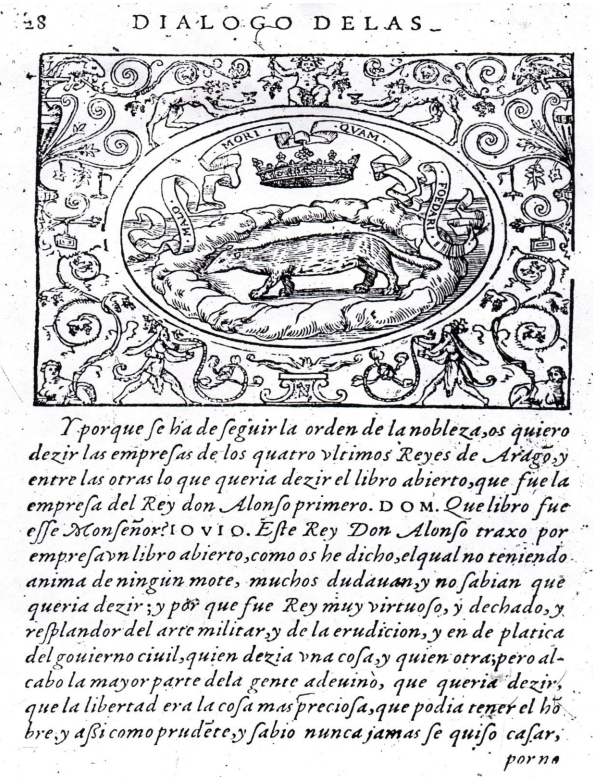 28 DIALOGO DELAS
MALO MORI QVAM FOEDARI
Y porque ſe ha de ſeguir la orden de la nobleza, os quiero
dezir las empreſas de los quatro vltimos Reyes de Aragõ, y
entre las otras lo que queria dezir el libro abierto, que fue la
empreſa del Rey don Alonſo primero. DOM. Que libro fue
eſſe Monſeñor? IOVIO. Eſte Rey Don Alonſo traxo por
empreſa vn libro abierto, como os he dicho, el qual no teniendo
anima de ningun mote, muchos dudauan, y no sabian que
queria dezir; y por que fue Rey muy virtuoſo, y dechado, y
reſplandor del arte militar, y de la erudicion, y en de platica
del gouierno ciuil, quien dezia vna coſa, y quien otra; pero al-
cabo la mayor parte dela gente adeuinò, que queria dezir,
que la libertad era la coſa mas preciosa, que podia tener el hõ
bre, y aſsi como prudẽte, y ſabio nunca jamas se quiſo caſar,
por no